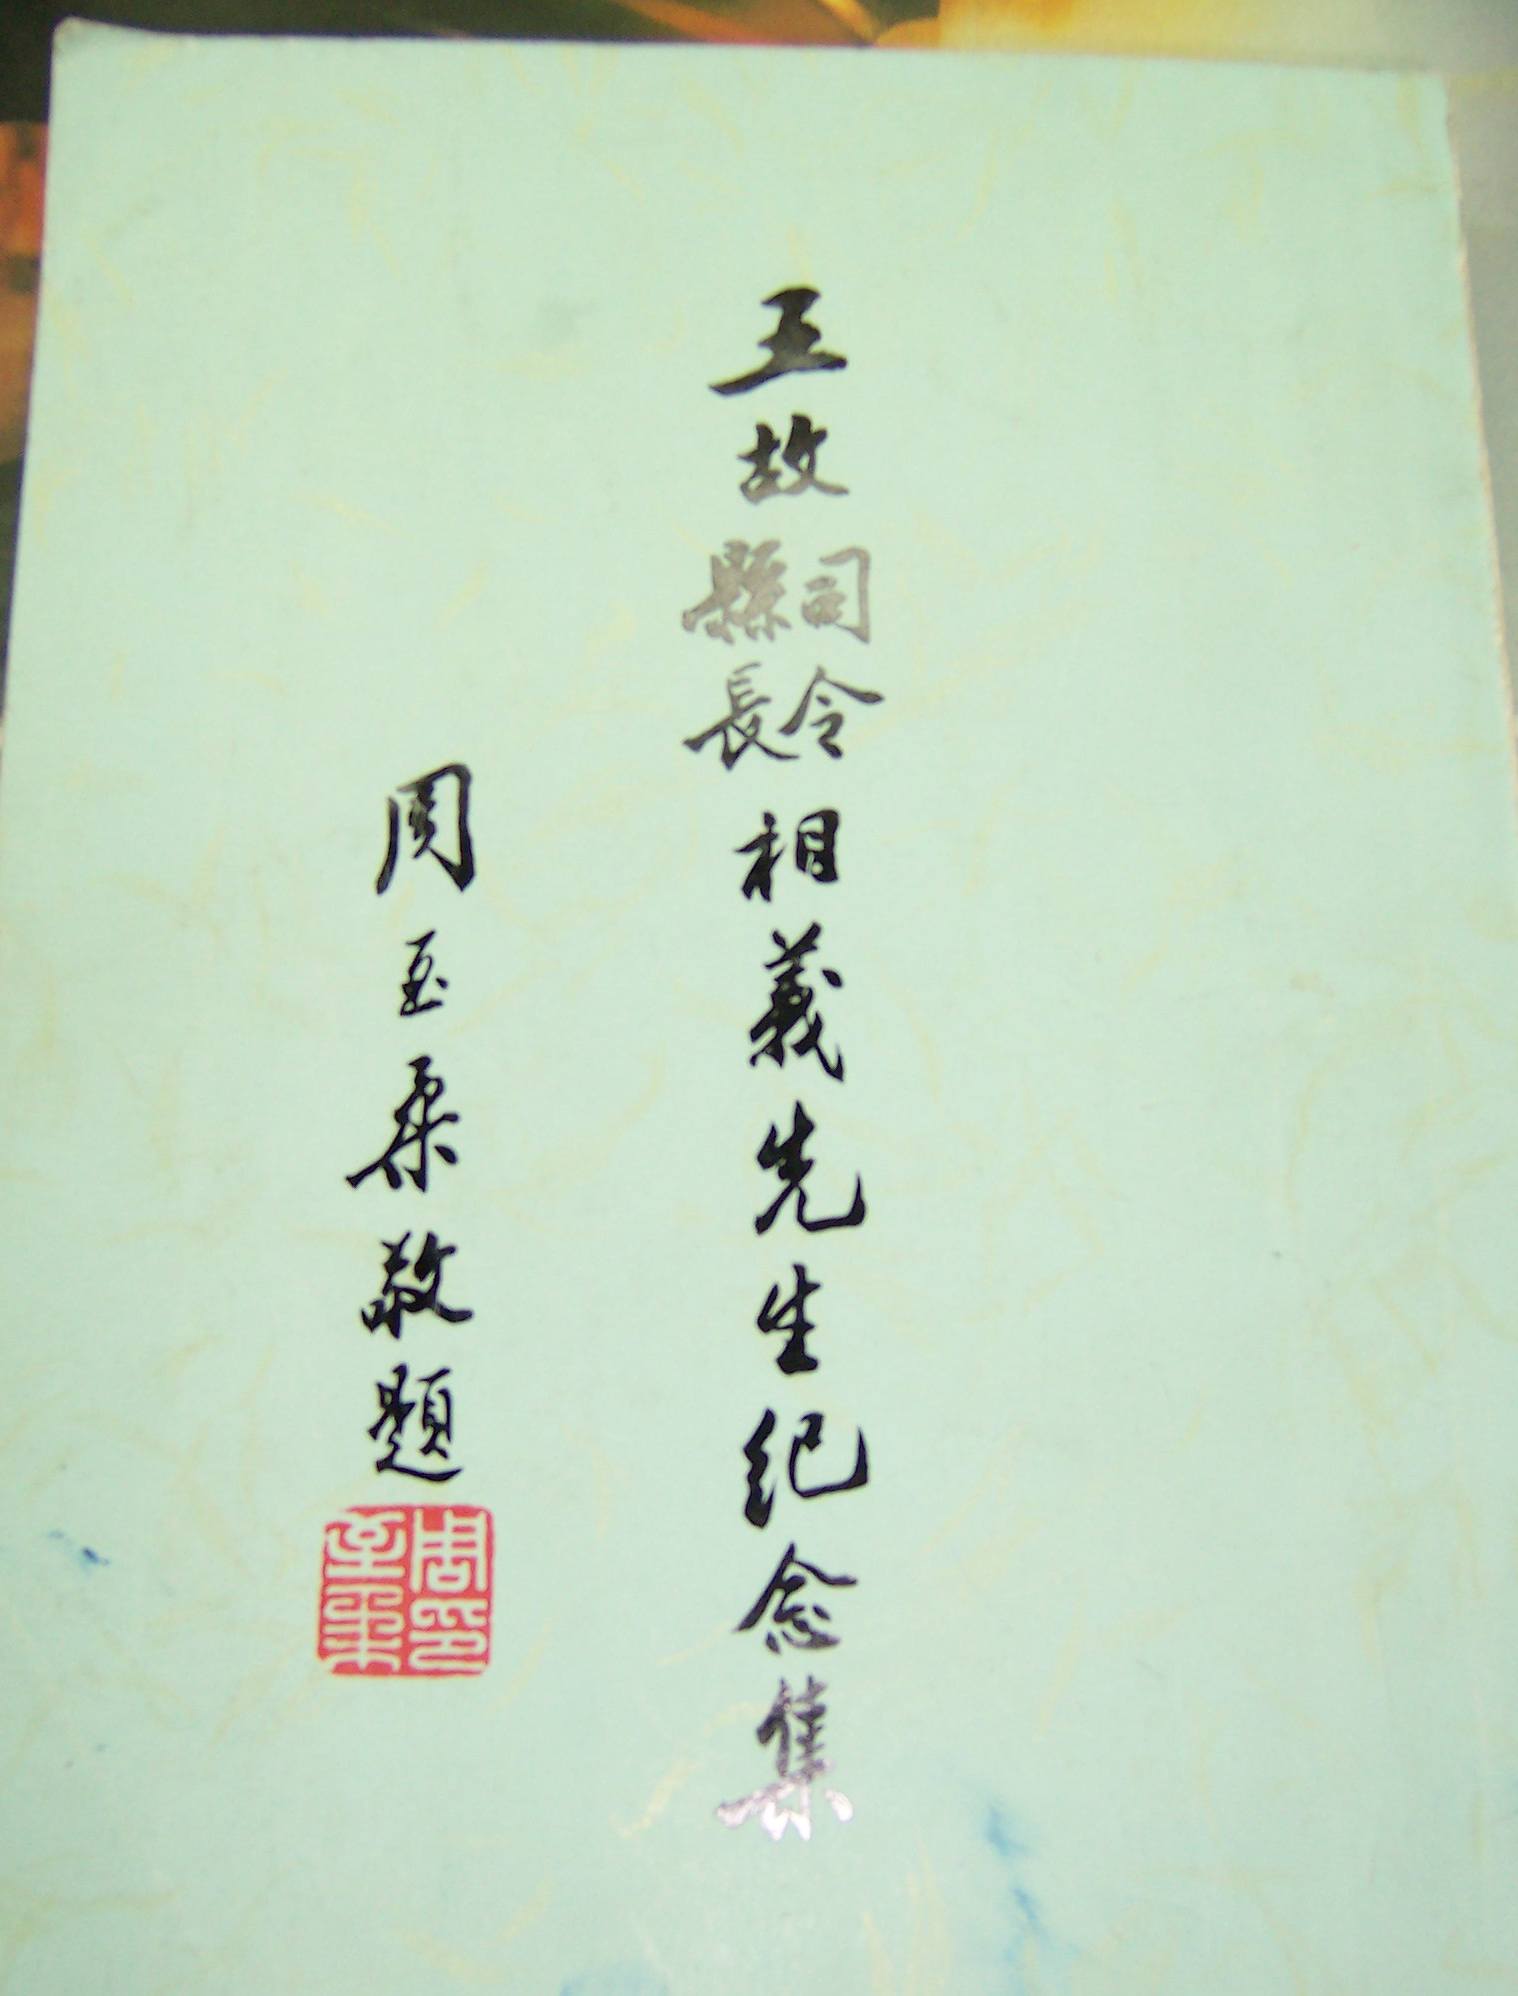 王故司令縣長相義先生紀念集
周至柔敬題
周至柔印